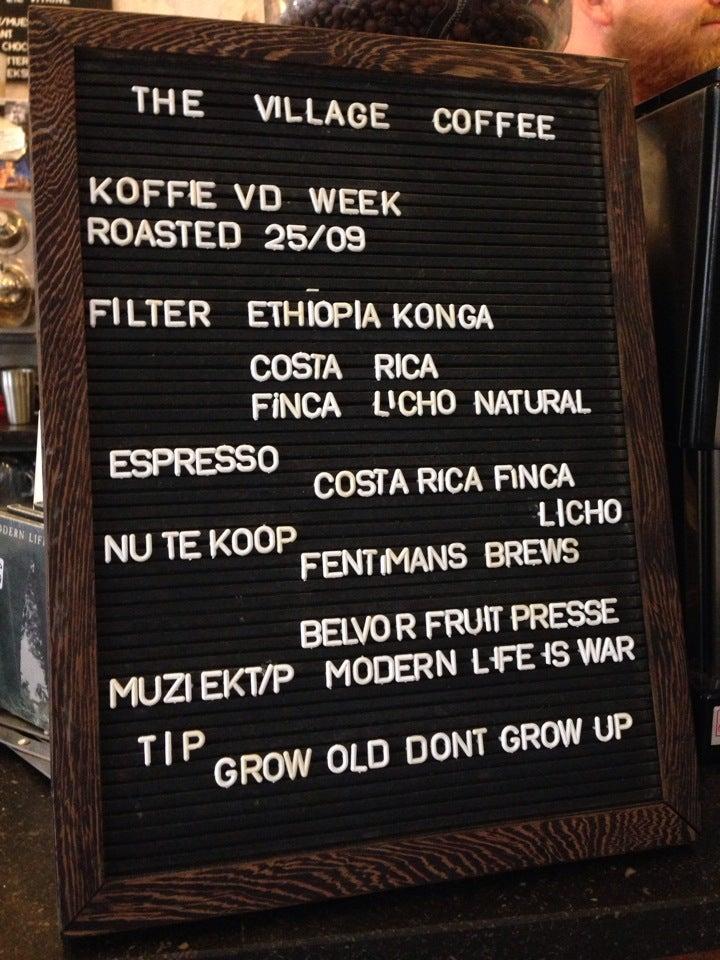 THE VILLAGE COFFEE
KOFFIE VD WEEK
ROASTED 25/09
FILTER ETHIOPIA KONGA
COSTA RICA
FINCA LICHO NATURAL
ESPRESSO COSTA RICA FINCA
LICHO
NU TE KOOP FENTIMANS BREWS
BELVOR FRUIT PRESSE
MUZIEKTIP MODERN LIFE IS WAR
TIP GROW OLD DONT GROW UP